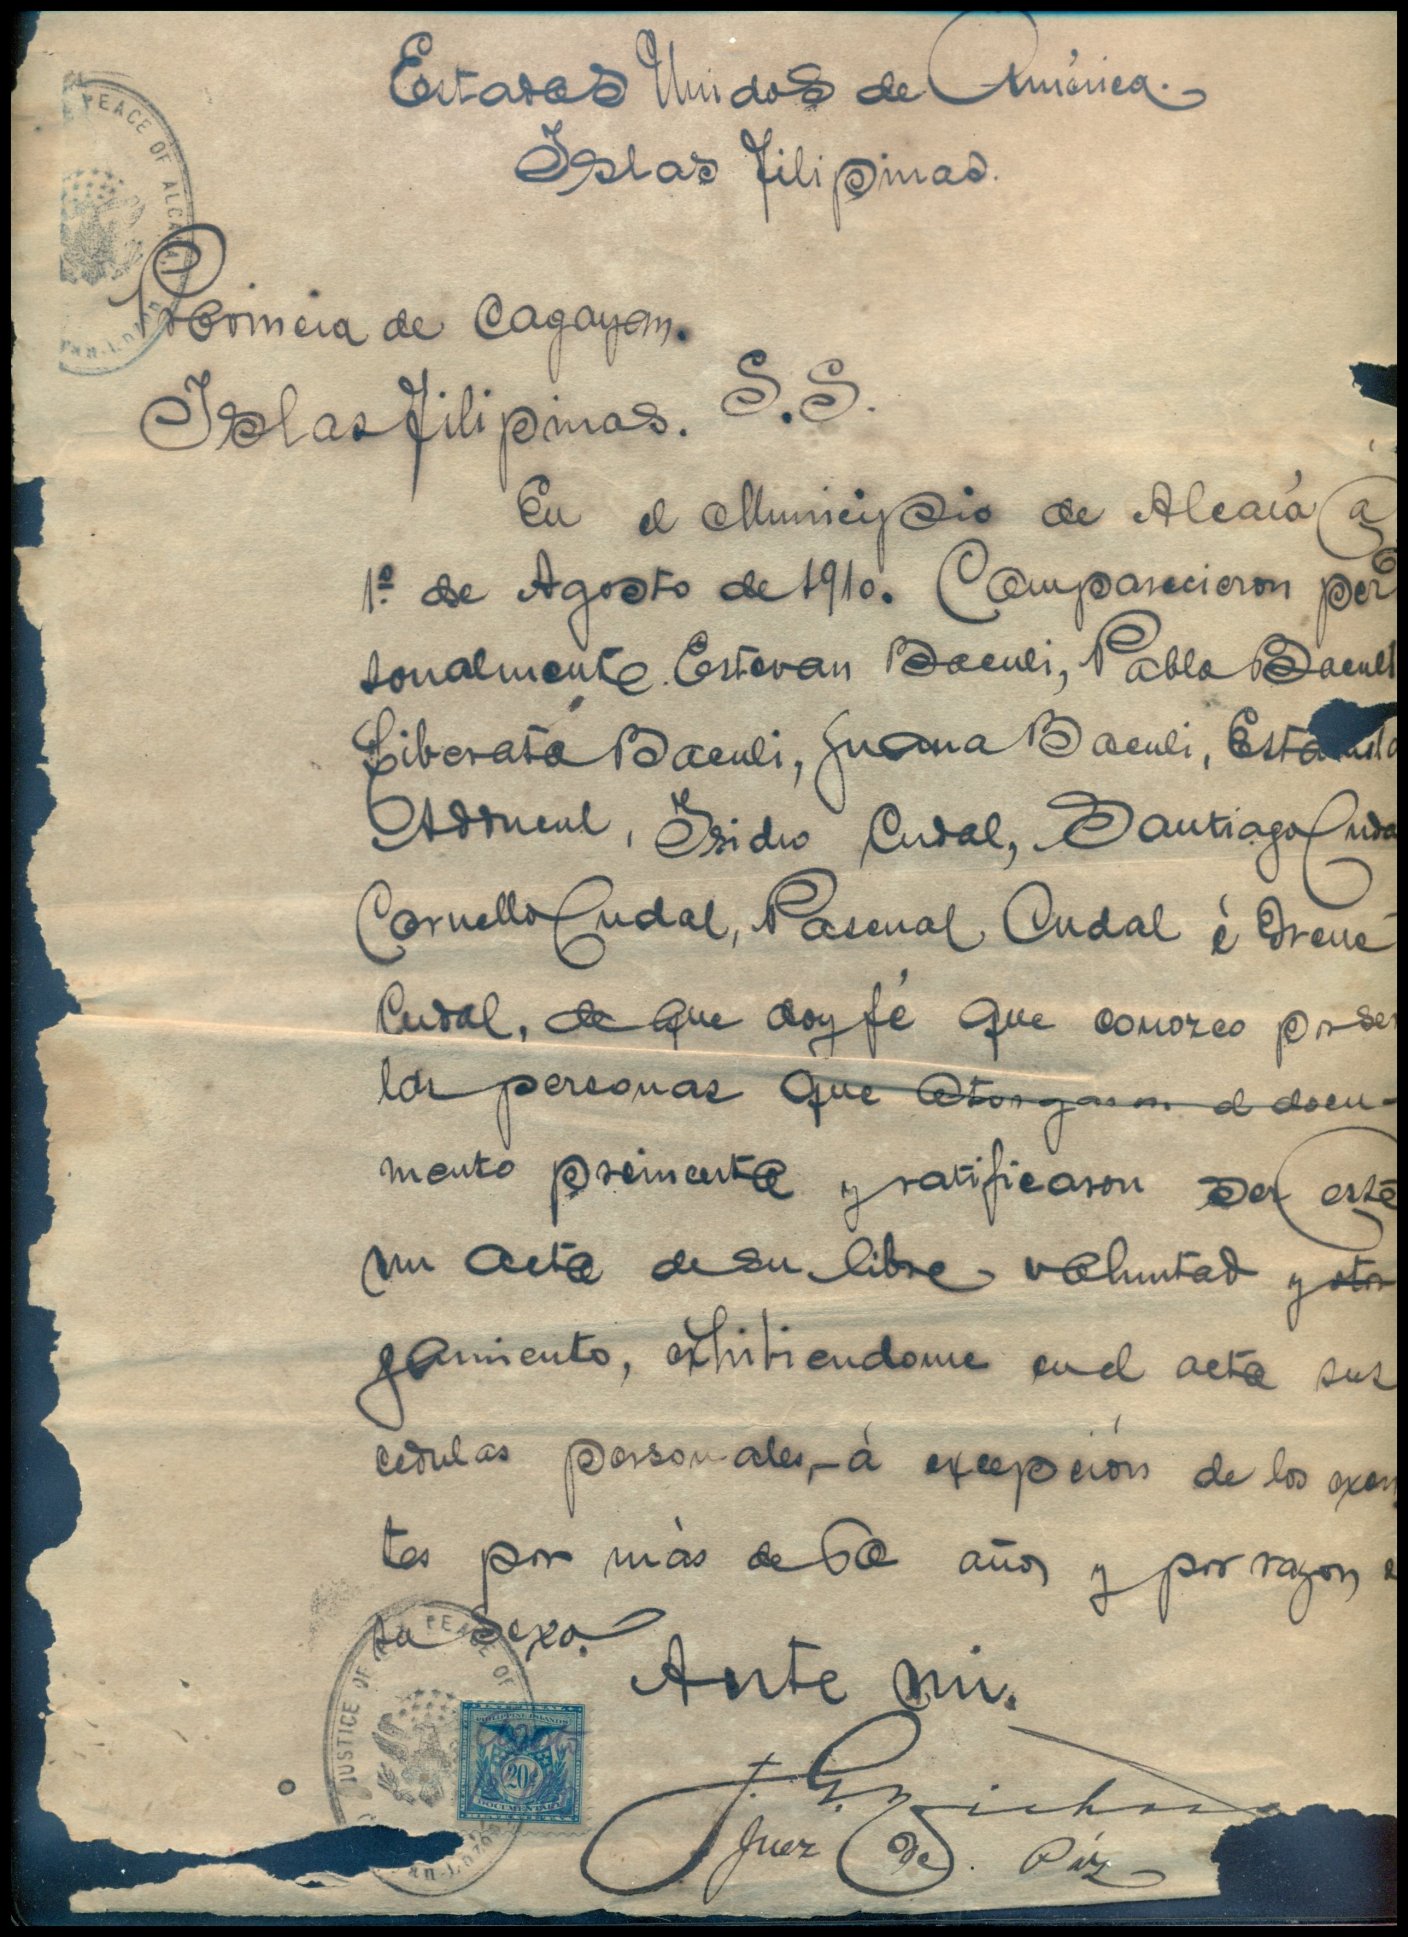 Estados Unidos de América.
Islas Filipinas.
PEACE OF ALCALA,
Provincia de Cagayan.
Islas Filipinas. S.S.
En el Municipio de Alcalá á
1º de Agosto de 1910. Comparecieron per
sonalmente Estevan Baculi, Pablo Baculi
Liberata Baculi, Juana Baculi,
Adducul, Isidro Cudal, Santiago Cuda
Cornelio Cudal, Pascual Cudal é Irene
Cudal, de que doy fé que conozco por ser
las personas que otorgaron el docu-
mento presente y ratificaron ser este
un acto de su libre voluntad y otor
gamiento, exhibiendome en el acto sus
cedulas personales, á excepción de los exen
tes por más de 60 años y por razon
su sexo.
Ante mi.
JUSTICE OF PEACE OF
PHILIPPINE ISLANDS
20
DOCUMENTARY
Juez de Paz